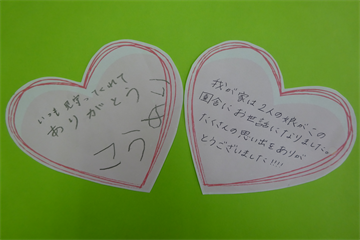 いつも見守ってくれて
ありがとう
こうめい
我が家は2人の娘がこの
園舎にお世話になりました。
たくさんの思い出をありが
とうございました!!!!